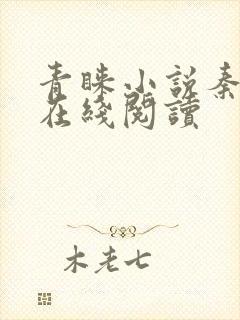 青睐小说秦
在綫閱讀
木老七